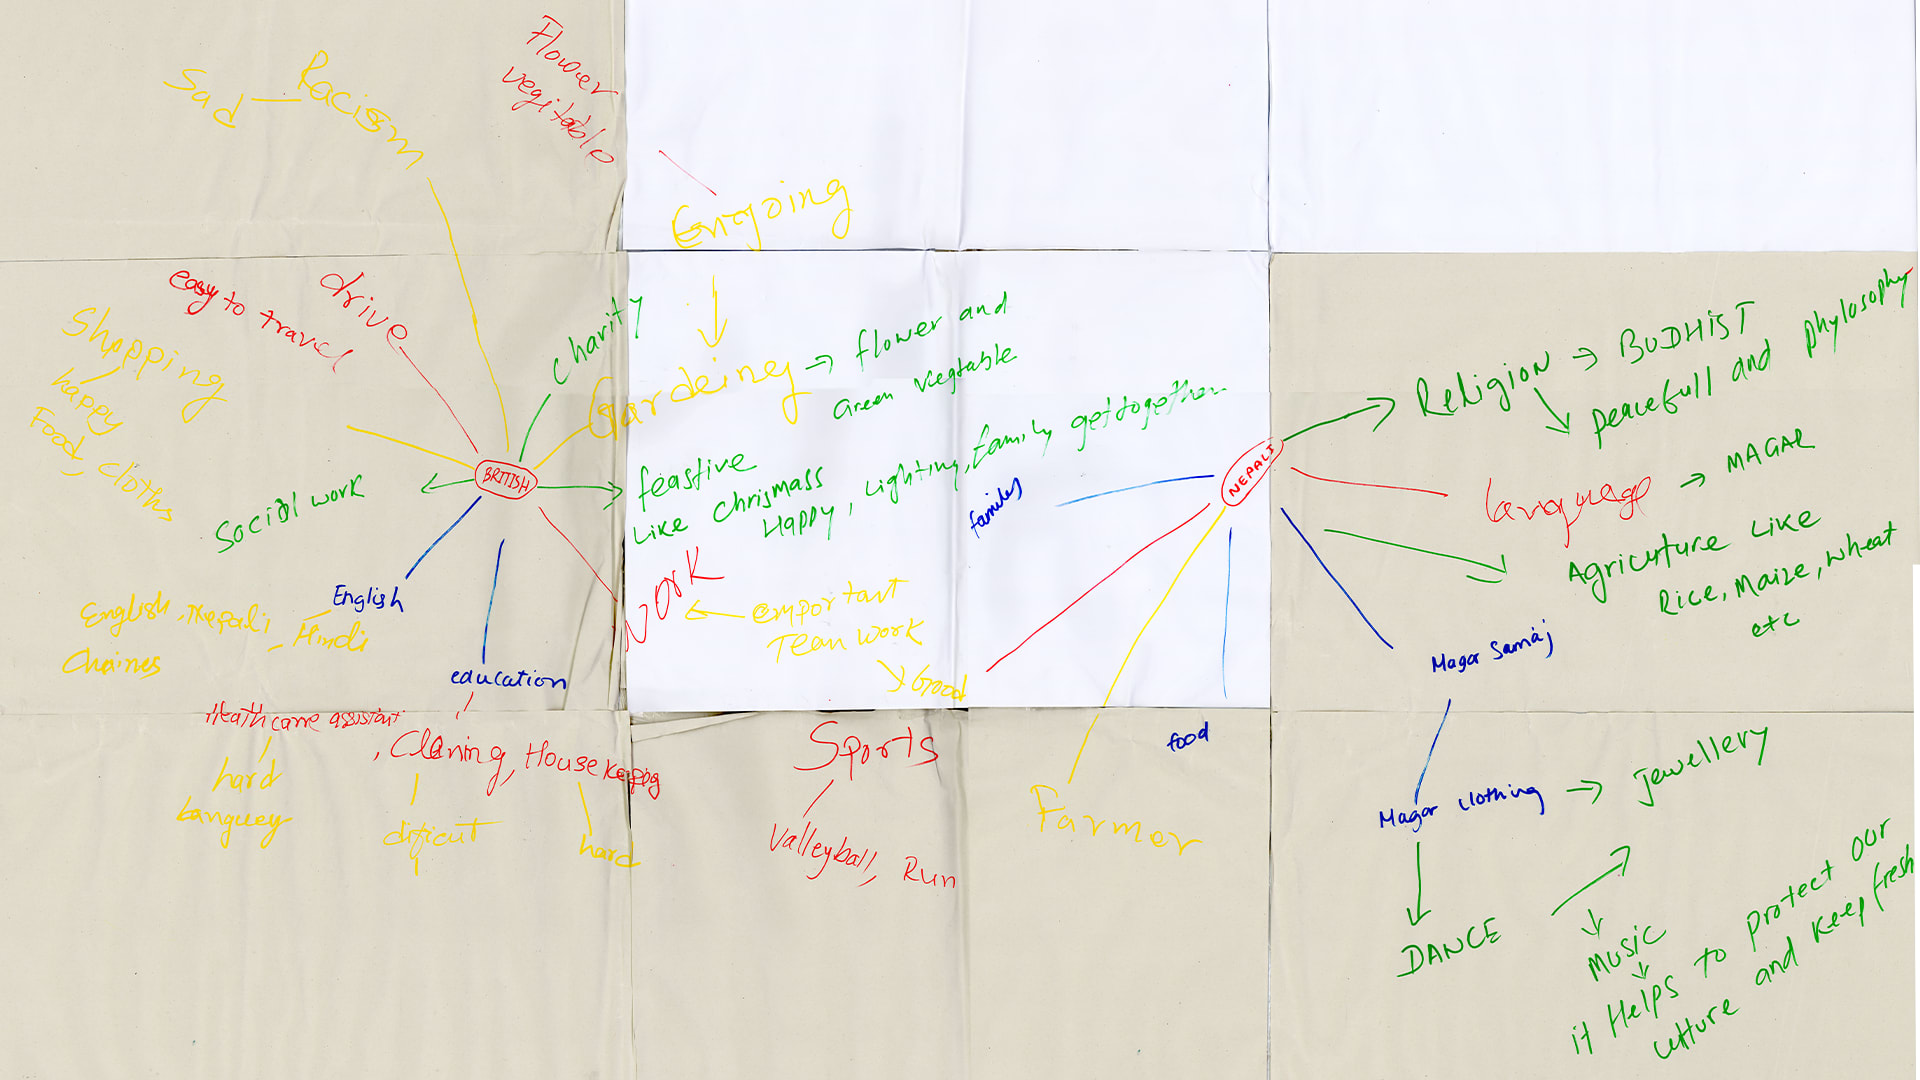 Flower
vegitable
Racism
Sad
Engoing
drive
easy to travel
charity
Shopping
happy
Food, cloths
Gardeing → flower and
Green Vegtable
BRITISH
Social work
feastive
Like Chrismass
Happy, Lighting, family gettogether
English
English, Nepali, Hindi
Chaines
education
work
emportant
Team work
Good
Heathcarre assistant
, Claning, Housekeeping
hard
Languey
dificut
hard
Sports
Valleyball, Run
NEPALI
families
Farmer
food
Religion → BUDHIST
peacefull and phylosophy
Language → MAGAR
Agricuture Like
Rice, Maize, wheat
etc
Magar Samaj
Magar clothing → jewellery
DANCE
MUSIC
it Helps to protect our
culture and keep fresh